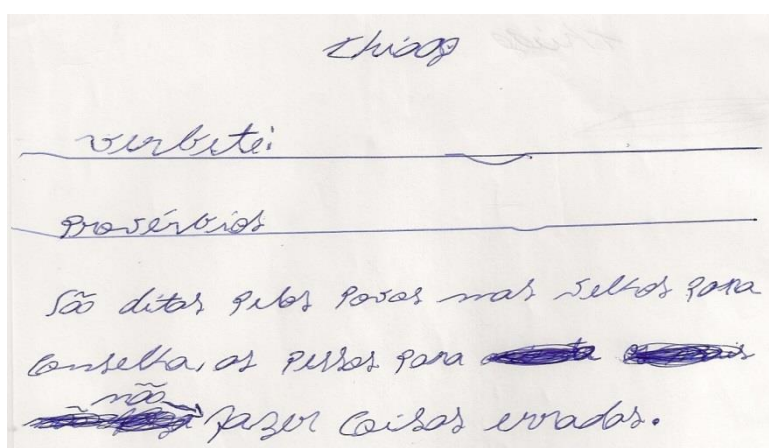 Thiago
Verbete:
Provérbios
São ditos pelos povos mas velhos para
conselha, as pessos para
não
fazer coisas erradas.